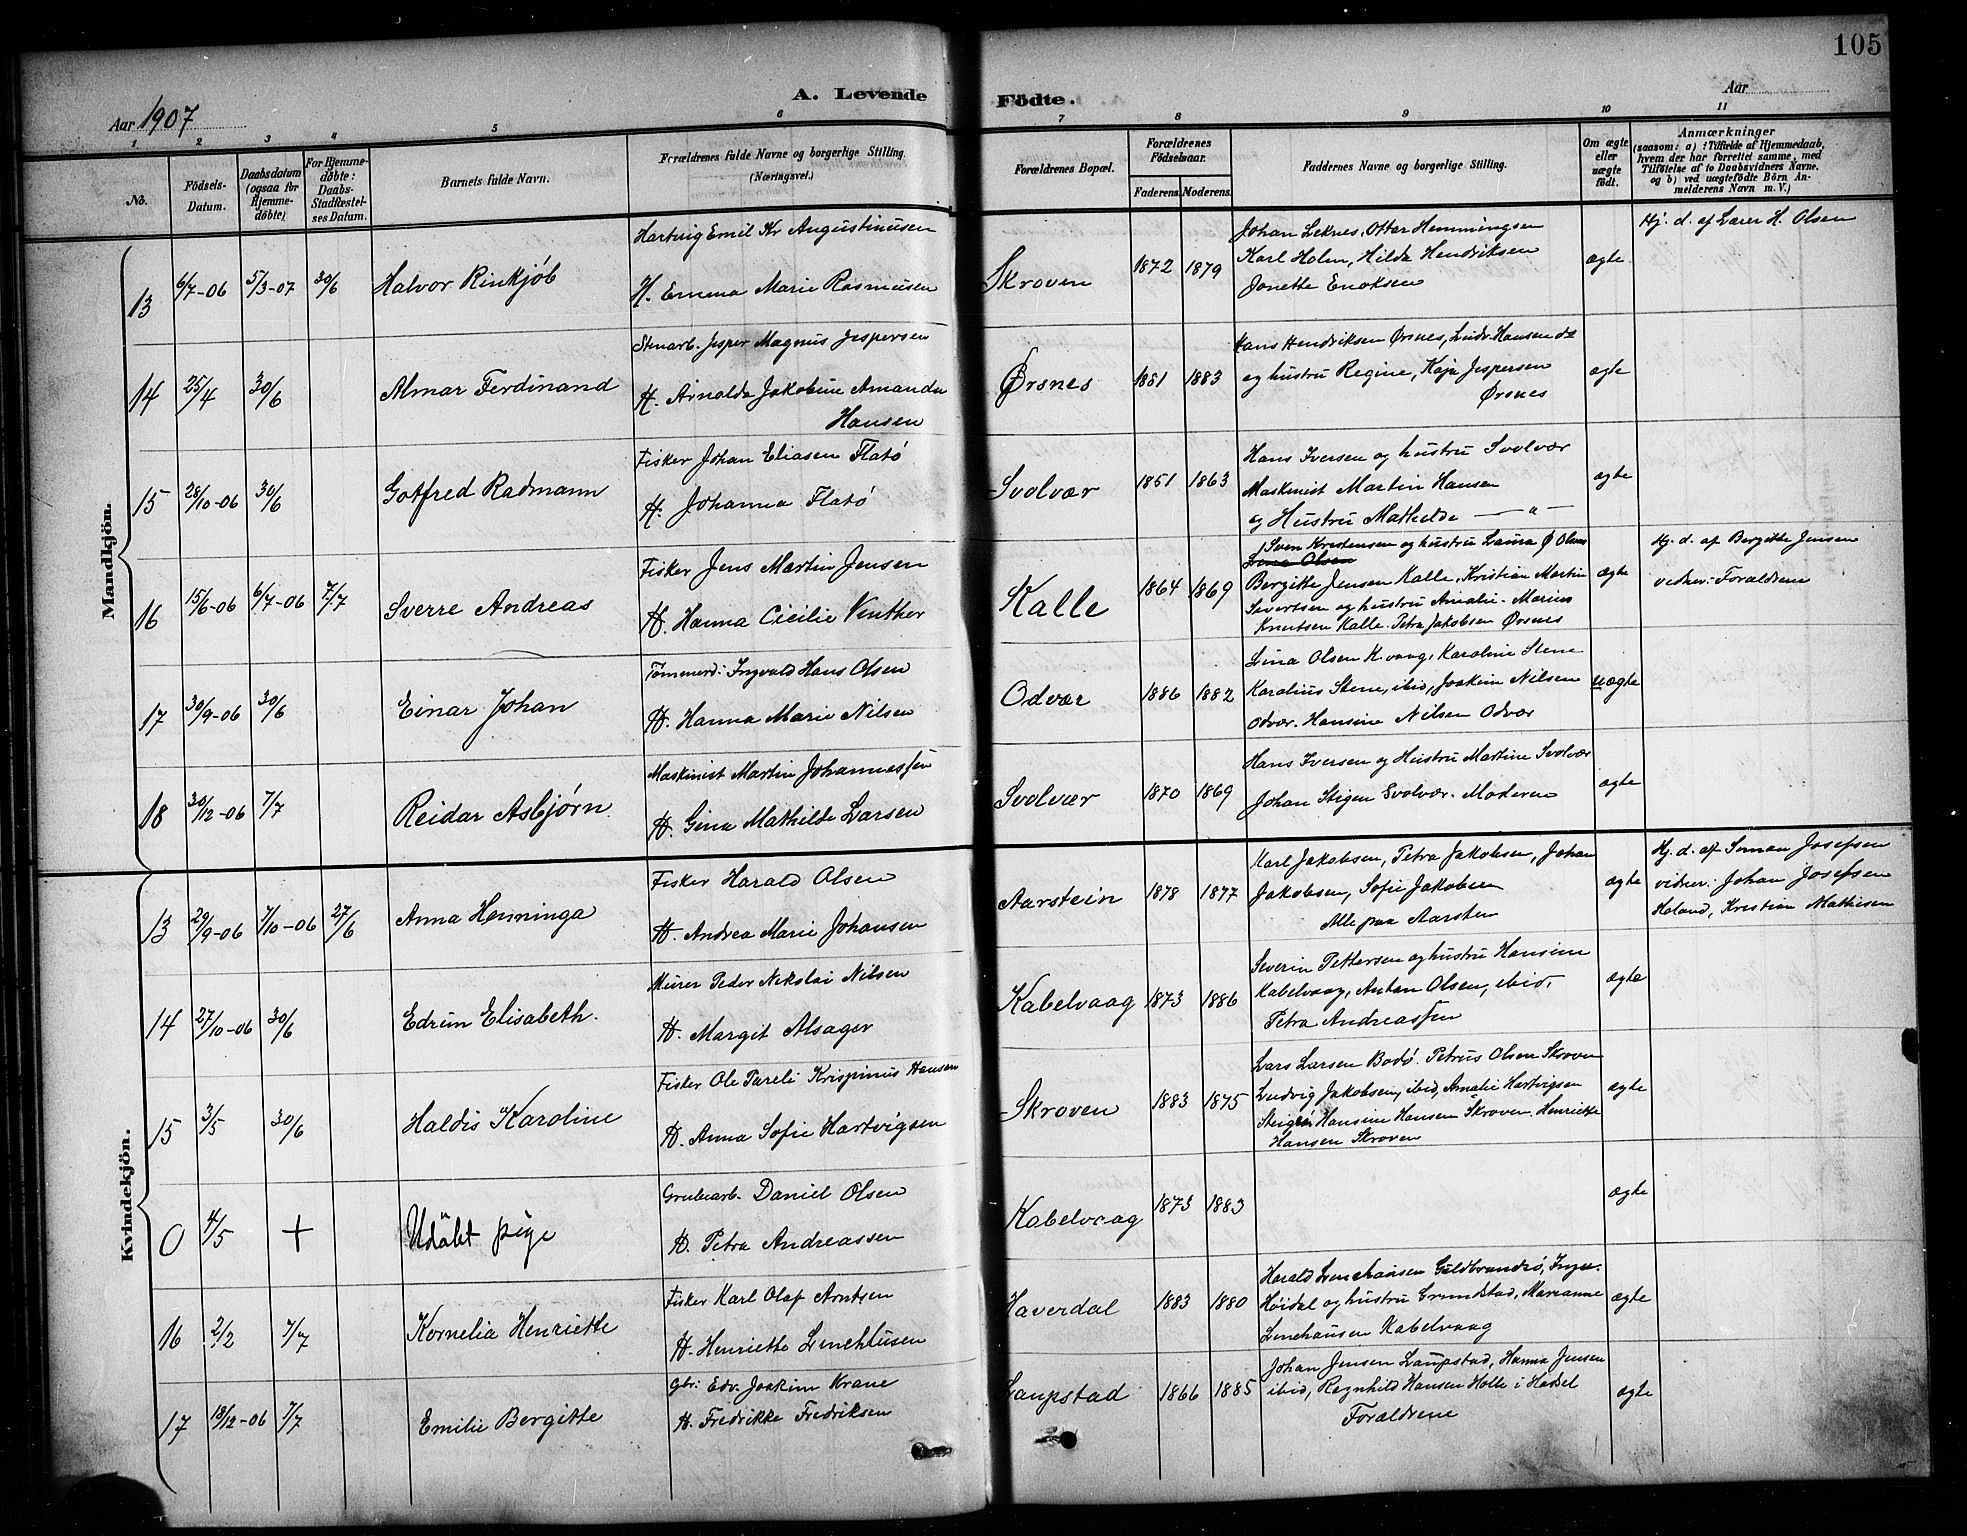 105
Aar 1907
A. Levende
Födte.
Aar
1 2 3 4 5 6 7 8 9 10 11
No.
Födsels-Datum.
Daabsdatum (ogsaa for Hjemme-döbte)
For Hjemme-döbte: Daabs-Stadfæstel-ses Datum.
Barnets fulde Navn.
Forældrenes fulde Navne og borgerlige Stilling.
(Næringsvei.)
Forældrenes Bopæl.
Forældrenes Födselsaar.
Faderens. Moderens.
Faddernes Navne og borgerlige Stilling.
Om ægte eller uægte födt.
Anmærkninger
(saasom: a) i Tilfælde af Hjemmedaab,
hvem der har forrettet samme, med
Tilföielse af to Daabsvidners Navne.
og b) ved uægtefödte Börn An-
melderens Navn m. V.)
Mandkjön.
13 6/7-06 5/3-07 30/6 Halvor Rinkjøb
Hartvig Emil Kr Augustinusen
H. Emma Marie Rasmusen
Skroven 1872 1879
Johan Leknes, Ottar Hemmingsen
Karl Holm, Hilda Hendriksen
Jonette Enoksen
ægte.
Hj. d. af Lærer H. Olsen
14 25/4 30/6 Almar Ferdinand
Stenarb. Jesper Magnus Jespersen
H. Arnolda Jakobine Amanda
Hansen
Ørsnes 1881 1883
Hans Hendriksen Ørsnes, Ludv. Hansen do
og hustru Regine, Kaja Jespersen
Ørsnes
ægte
15 28/10-06 30/6 Gotfred Radmann
Fisker Johan Eliasen Flatø
H. Johanna Flatø
Svolvær 1851 1863
Hans Iversen og hustru Svolvær
Maskinist Martin Hansen
og Hustru Mathilde — " —
ægte
16 15/6-06 6/7-06 7/7 Sverre Andreas
Fisker Jens Martin Jensen
H. Hanna Cicilie Vinther
Kalle 1864 1869
Sven Kristensen og hustru Laura Ø Olsens
Lena Olsen
Bergitte Jensen Kalle, Kristian Martin
Sivertsen og hustru Amalie. Marius
Knutsen Kalle. Petra Jakobsen Ørsnes
ægte
Hj. d. af Bergitte Jensen
vidner: Forældrene
17 30/9-06 30/6 Einar Johan
Tømmerd: Ingvald Hans Olsen
H. Hanna Marie Nilsen
Odvær 1886 1882
Lina Olsen K.vaag, Karoline Stene
Karolius Stene, ibid, Joakim Nilsen
Odvær. Hansine Nilsen Odvær
uægte
18 30/12-06 7/7 Reidar Asbjørn.
Maskinist Martin Johannessen
H. Gina Mathilde Larsen
Svolvær 1870 1869
Hans Iversen og Hustru Martine Svolvær
Johan Stigen Svolvær. Moderen
ægte
Kvindekjön.
13 29/9-06 7/10-06 27/6 Anna Henninga
Fisker Harald Olsen
H. Andrea Marie Johansen
Aarstein 1878 1877
Karl Jakobsen, Petra Jakobsen, Johan
Jakobsen, Sofie Jakobsen
Alle paa Aarsten
ægte
Hj. d. af Simon Josefsen
vidner: Johan Josefsen
Holand, Kristian Mathisen
14 27/10-06 30/6 Edrun Elisabeth.
Murer Peder Nikolai Nilsen
H. Margit Alsager
Kabelvaag 1873 1886
Severin Pettersen og hustru Hansine
Kabelvaag, Anton Olsen, ibid,
Petra Andreassen
ægte
15 3/5 30/6 Haldis Karoline
Fisker Ole Pareli Krispinus Hansen
H. Anna Sofie Hartvigsen
Skroven 1883 1875
Lars Larsen Bodø. Petrus Olsen Skroven
Ludvig Jakobsen, ibid, Amalie Hartvigsen
Steigen Hansine Hansen Skroven Henriette
Hansen Skroven
ægte
0 4/5 + Udöbt pige
Grubearb. Daniel Olsen
H. Petra Andreassen
Kabelvaag 1873 1883
ægte
16 2/2 7/7 Kornelia Henriette
Fisker Karl Olaf Arntsen
H. Henriette Linchhusen
Haverdal 1883 1880
Harald Linchausen Guldbrandsø,
Høidal og hustru Grundstad, Marianne
Linchausen Kabelvaag
ægte
17 18/12-06 7/7 Emilie Bergitte
Gbr: Edv. Joakim Krane
H. Fredrikke Fredriksen
Laupstad 1866 1885
Johan Jensen Laupstad, Hanna Jensen
ibid, Ragnhild Hansen Holle i Hadsel
Forældrene
ægte